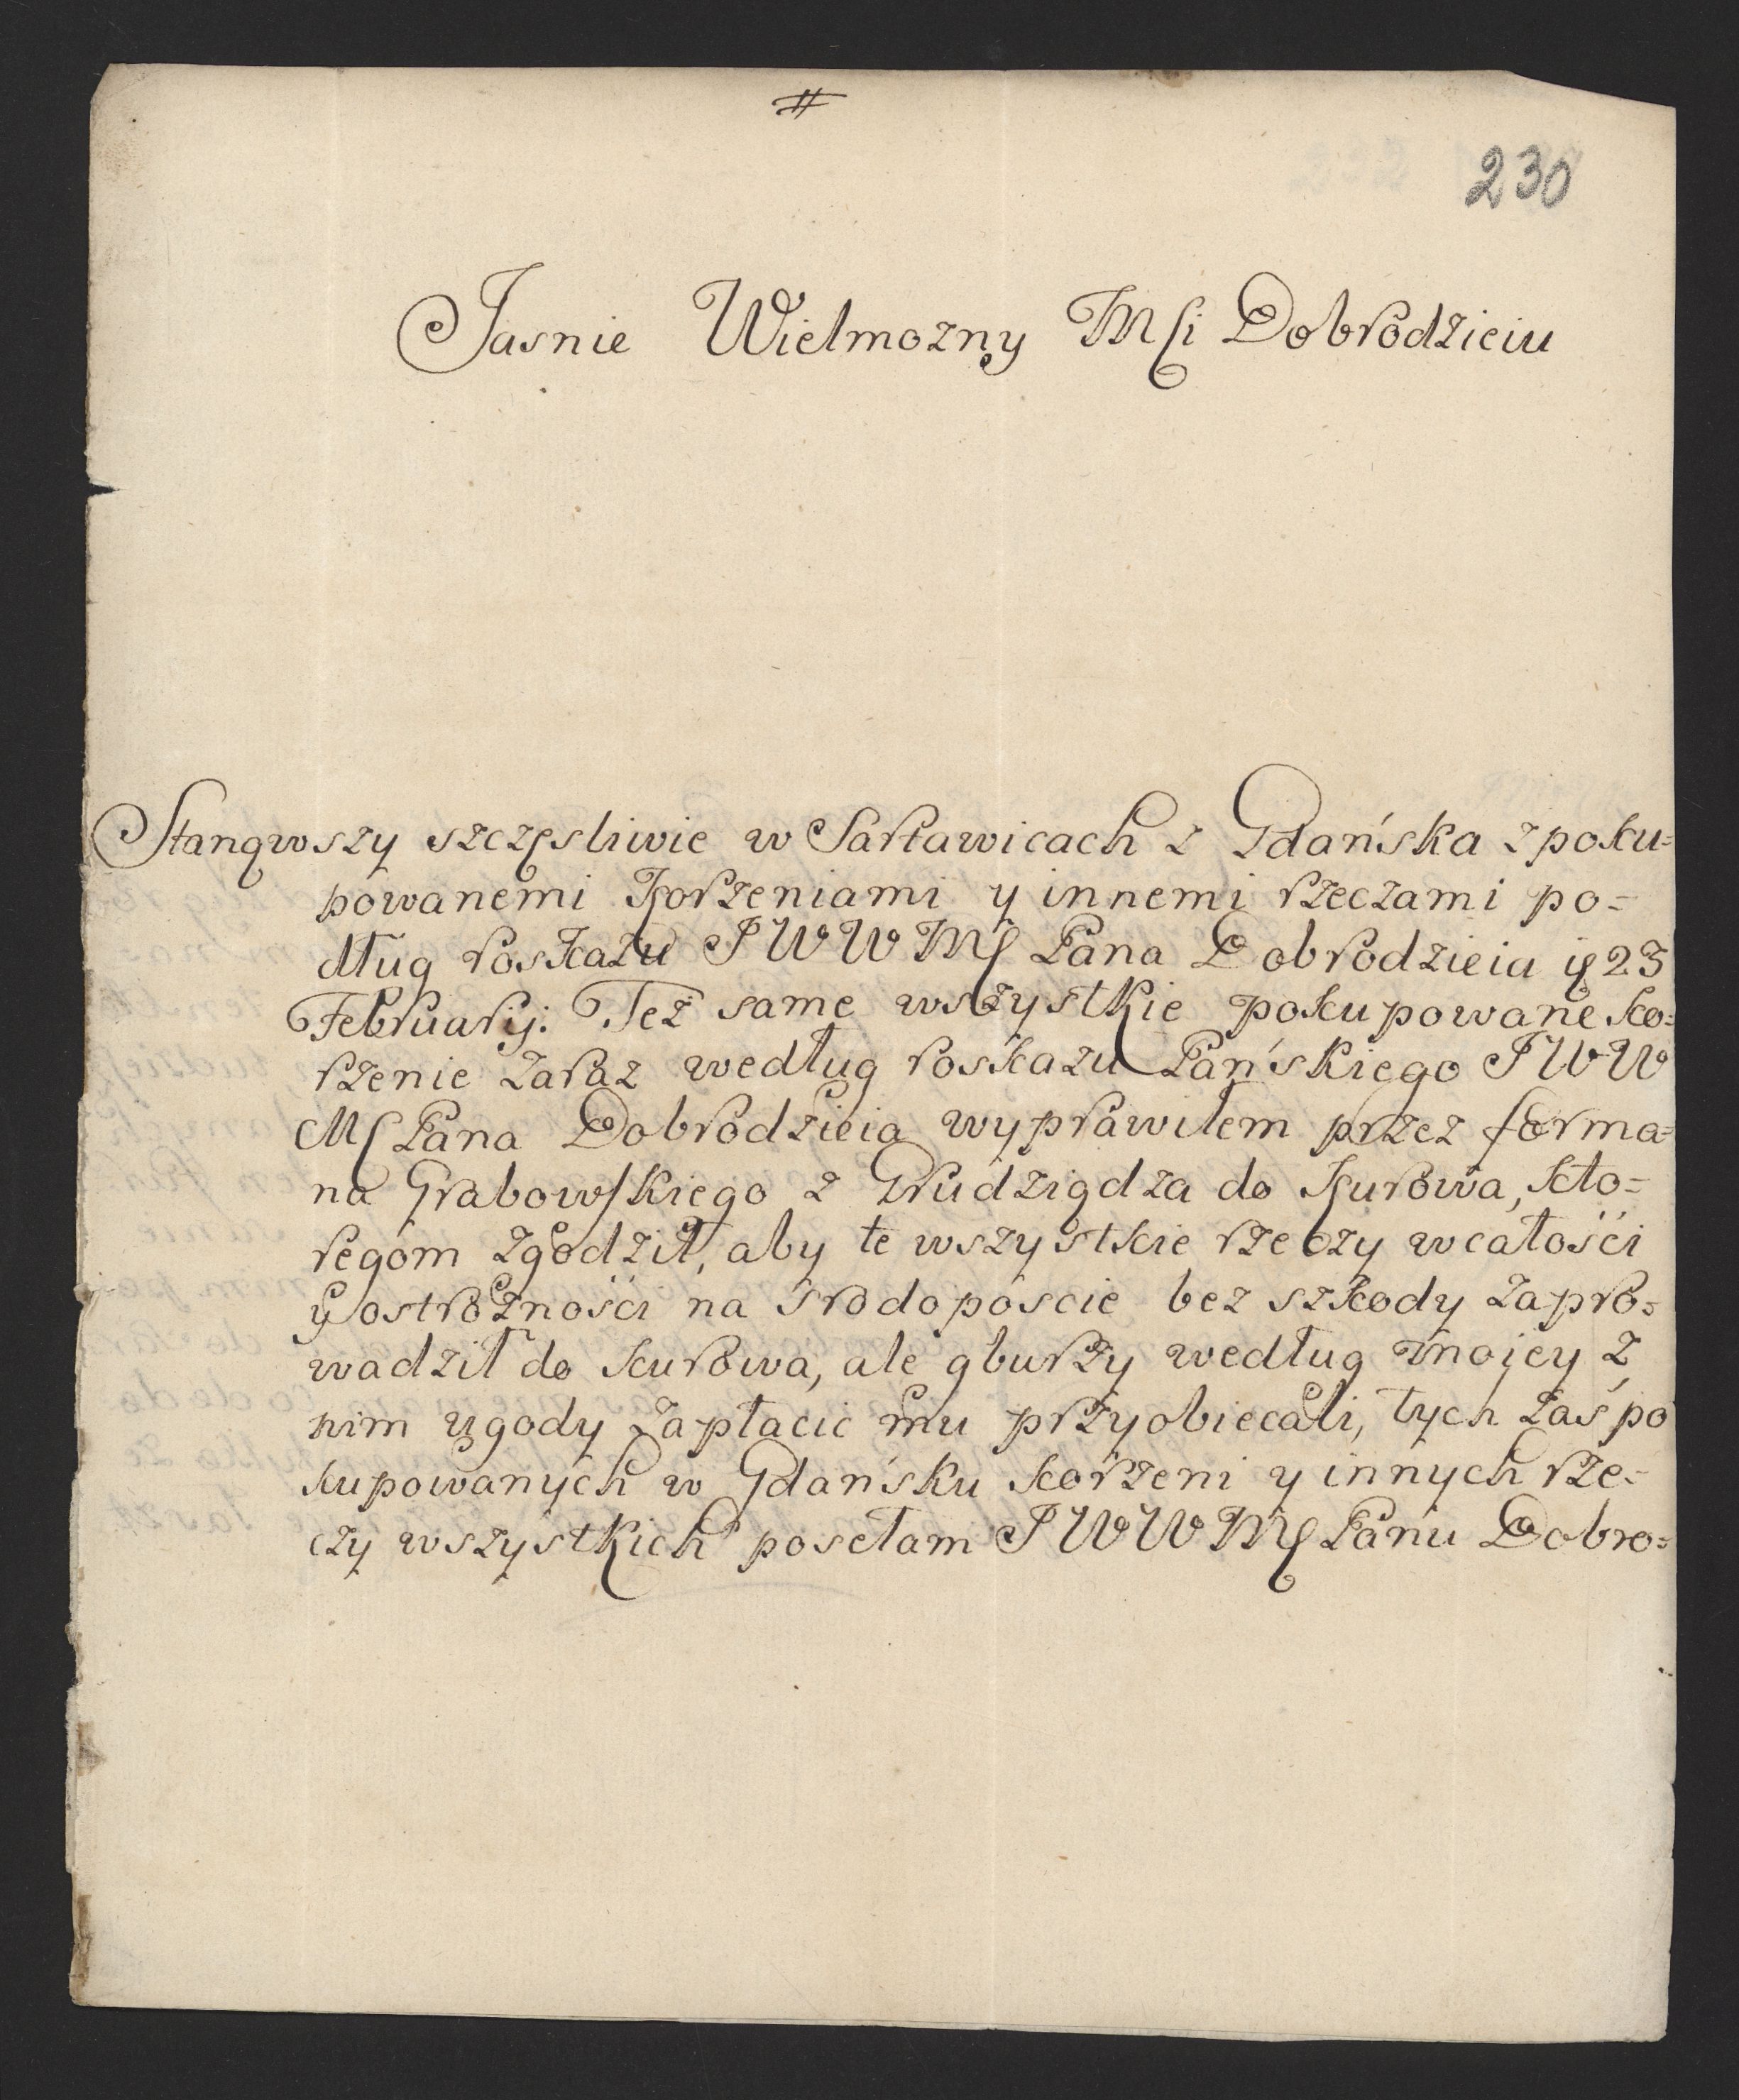 #
230
Jasnie Wielmozny Mſci Dobrodzieiu
Stanąwszy szczęsliwie w Sartawicach z Gdańska z poku=
powanemi Korzeniami y innemi rzeczami po=
dług roskazu J W W Mſ Pana Dobrodzieia 23
February: Też same wszystkie pokupowane ko=
rzenie zaraz według roskazu Pańskiego J W W
Mſ Pana Dobrodzieia wyprawiłem przez forma=
na Grabowſkiego z Grudziądza do Kurowa, kto=
regom zgodził, aby te wszystkie rzeczy w całości
y ostrożności na srodopoście bez szkody zapro=
wadził do Kurowa, ale gburzy według mojey z
nim ugody zapłacić mu przyobiecali, tych zaś po
kupowanych w Gdańsku korzeni y innych rze=
czy wszystkich posełam J W W Mſ Panu Dobro=